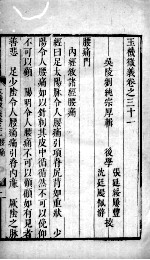 玉機微義卷之三十一
吳陵劉純宗厚輯　後學
腰痛門
內經敘諸經腰痛
經曰足太陽脉令人腰痛引項脊尻背如重狀　少
陽令人腰痛如以針刺其皮中循循然不可以俛仰
不可以顧　陽明令人腰痛不可以顧顧如有見者
善悲　足少陰令人腰痛痛引脊內廉　厥陰之脉